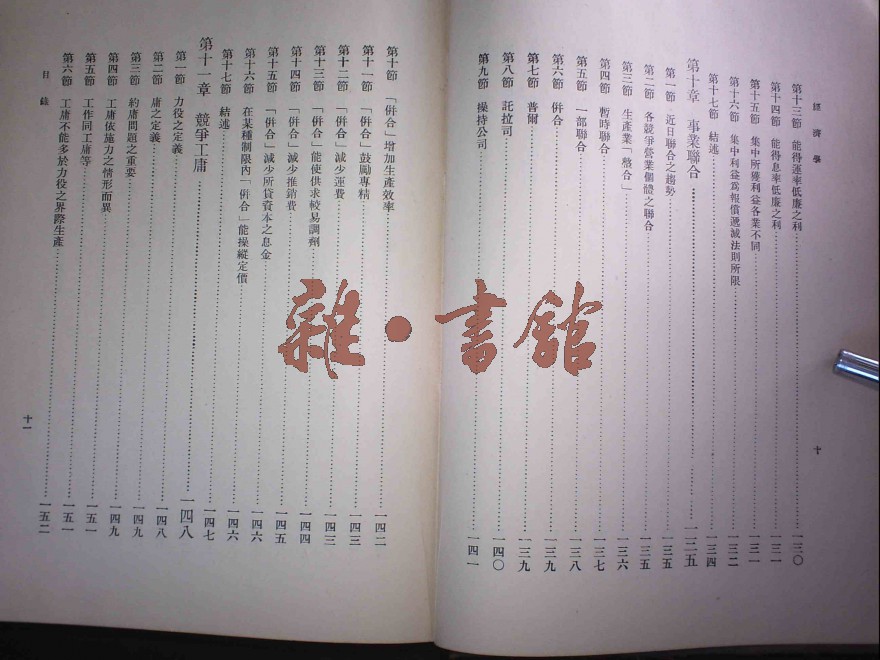 經濟學
第十三節 能得運率低廉之利 一三〇
第十四節 能得息率低廉之利 一三一
第十五節 集中所獲利益各業不同 一三一
第十六節 集中利益爲報償遞減法則所限 一三二
第十七節 結述 一三四
第十章 事業聯合 一三五
第一節 近日聯合之趨勢 一三五
第二節 各競爭營業個體之聯合 一三五
第三節 生產業「整合」 一三六
第四節 暫時聯合 一三七
第五節 一部聯合 一三八
第六節 併合 一三九
第七節 普爾 一三九
第八節 託拉司 一四〇
第九節 操持公司 一四一
十
第十節 「併合」增加生產效率 一四二
第十一節 「併合」鼓勵專精 一四三
第十二節 「併合」減少運費 一四三
第十三節 「併合」能使供求較易調劑 一四四
第十四節 「併合」減少推銷費 一四五
第十五節 「併合」減少所貸資本之息金 一四六
第十六節 在某種制限內「併合」能操縱定價 一四六
第十七節 結述 一四七
第十一章 競爭工庸 一四八
第一節 力役之定義 一四八
第二節 庸之定義 一四九
第三節 約庸問題之重要 一四九
第四節 工庸依施力之情形而異 一五一
第五節 工作同工庸等 一五一
第六節 工庸不能多於力役之界際生產 一五二
目錄
十一
雜·書館